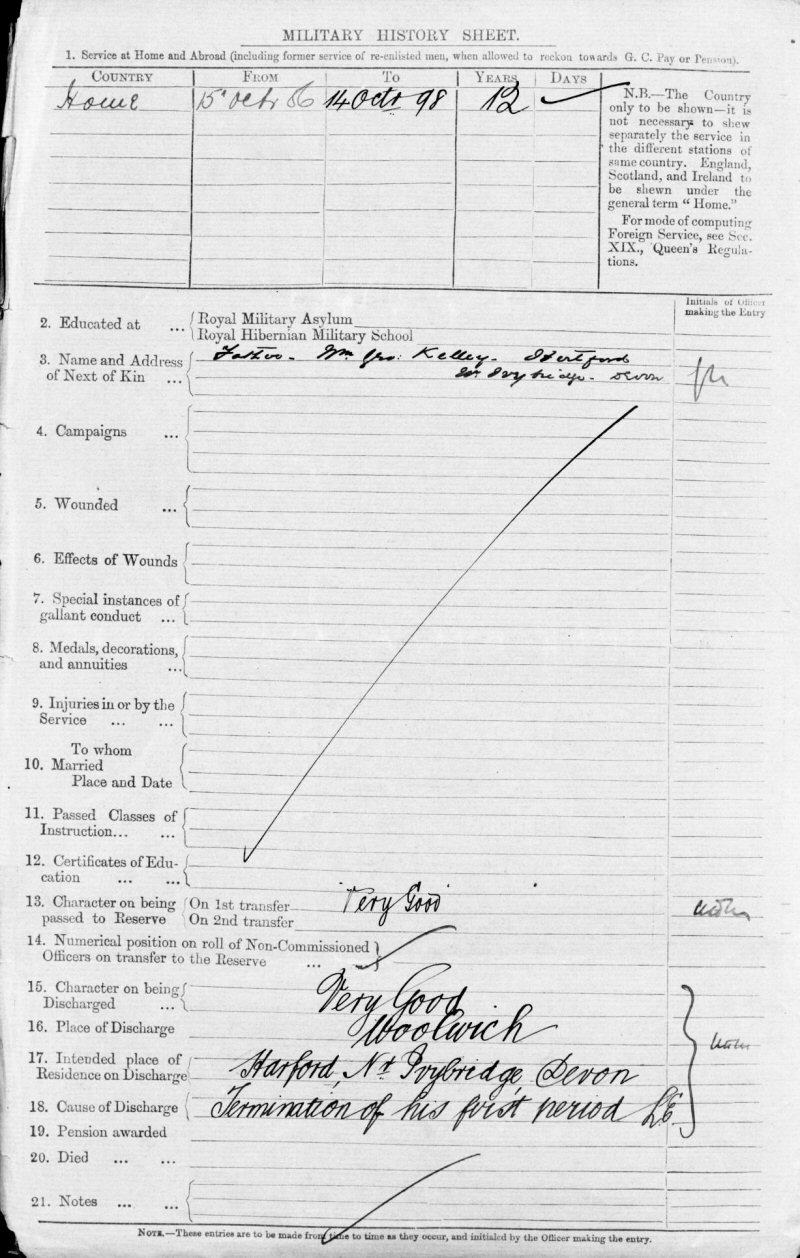 MILITARY HISTORY SHEET.
1. Service at Home and Abroad (including former service of re-enlisted men, when allowed to reckon towards G. C. Pay or Pension).
COUNTRY FROM TO YEARS DAYS
Home 15 Octr 86 14 Octr 98 12
N.B.—The Country
only to be shown—it is
not necessary to shew
separately the service in
the different stations of
same country. England,
Scotland, and Ireland to
be shewn under the
general term "Home."
For mode of computing
Foreign Service, see Sec.
XIX., Queen's Regula-
tions.
Initials of Officer
making the Entry
2. Educated at ... Royal Military Asylum
Royal Hibernian Military School
3. Name and Address
of Next of Kin ...
Father. Wm Geo: Kelley.
Nr Ivybridge. Devon
4. Campaigns ...
5. Wounded ...
6. Effects of Wounds
7. Special instances of
gallant conduct ...
8. Medals, decorations,
and annuities ...
9. Injuries in or by the
Service ... ...
To whom
10. Married
Place and Date
11. Passed Classes of
Instruction... ...
12. Certificates of Edu-
cation ... ...
13. Character on being
passed to Reserve
On 1st transfer Very Good
On 2nd transfer
14. Numerical position on roll of Non-Commissioned
Officers on transfer to the Reserve ...
15. Character on being
Discharged ...
Very Good
16. Place of Discharge Woolwich
17. Intended place of
Residence on Discharge
Harford, Nr Ivybridge, Devon
18. Cause of Discharge Termination of his first period L.E.
19. Pension awarded
20. Died ... ...
21. Notes ... ...
NOTE.—These entries are to be made from time to time as they occur, and initialed by the Officer making the entry.